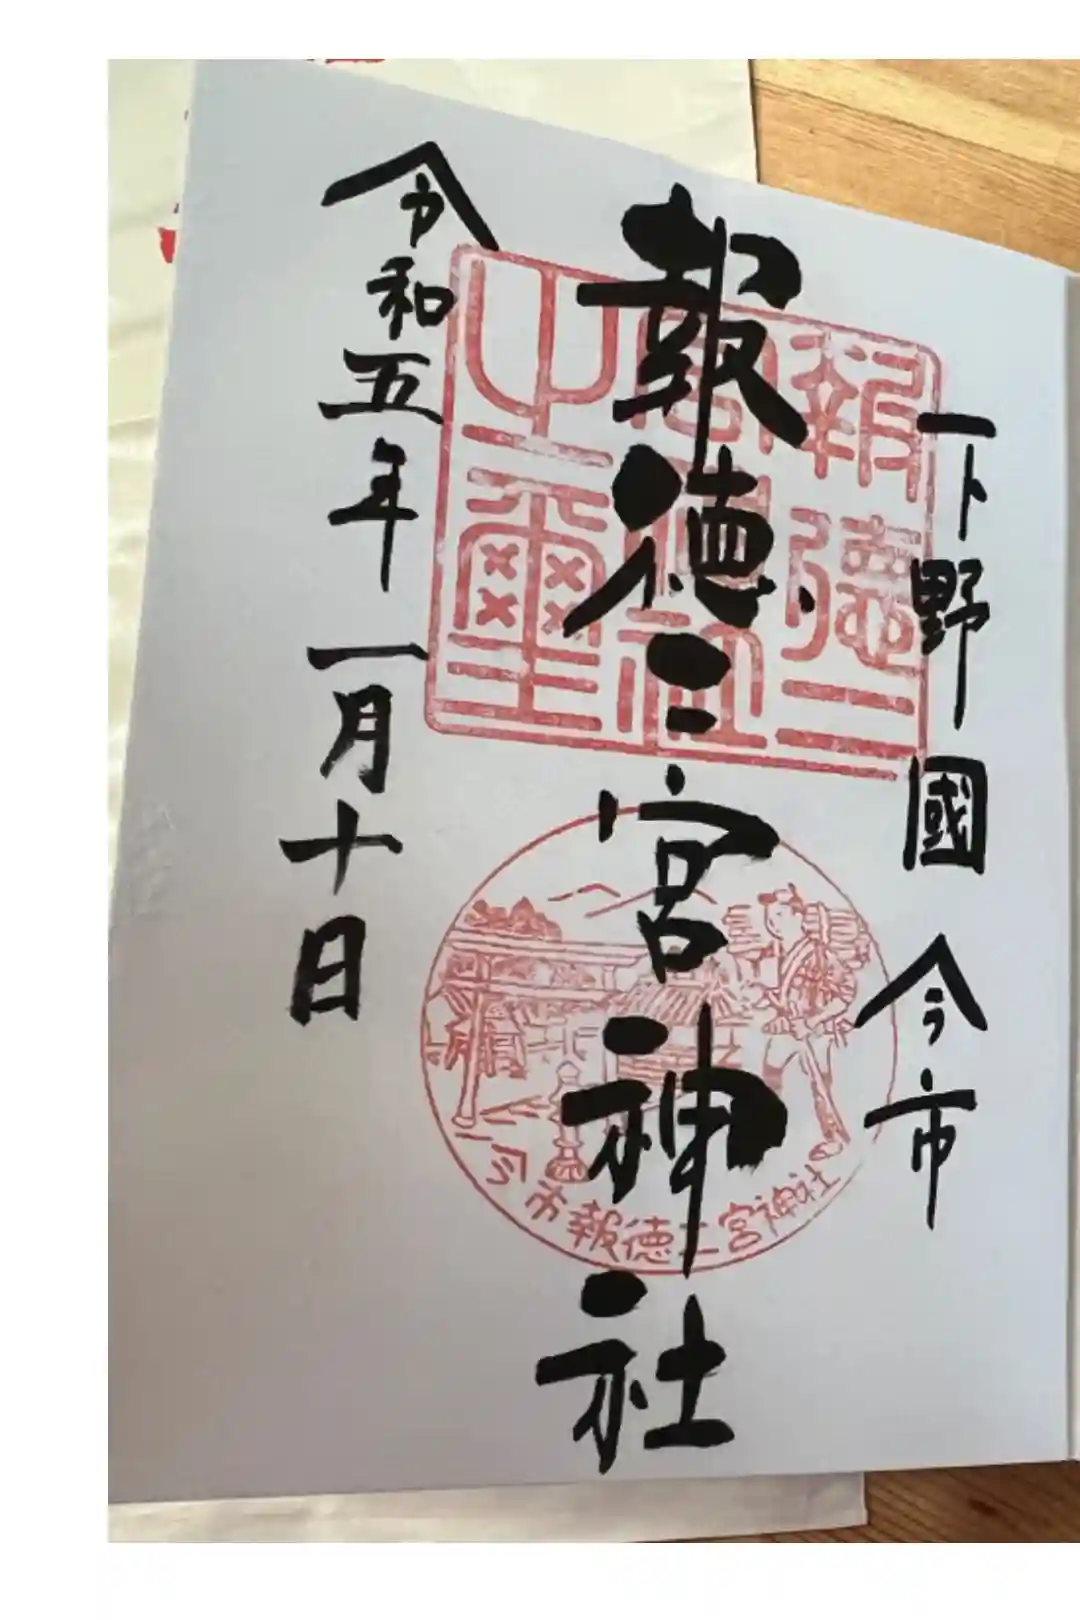 下野國 今市
報徳二宮神社
令和五年一月十日
報徳二宮神社之璽
今市報徳二宮神社